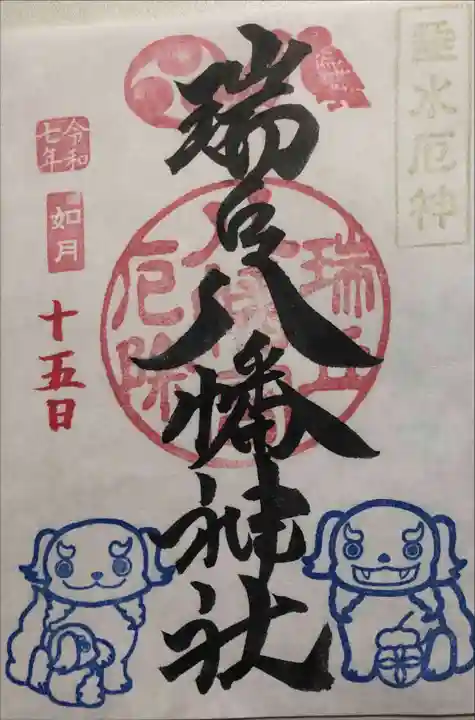 垂水厄神
瑞丘八幡神社
瑞丘
八幡宮
厄除
令和
七年
如月
十五日